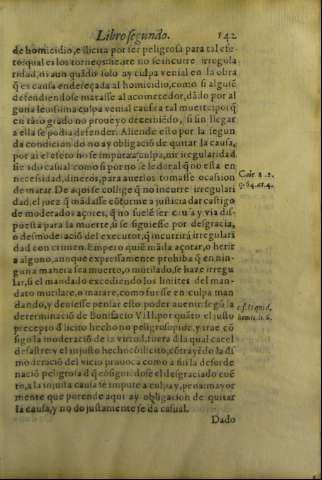 Libro segundo. 142
de homicidio, e ilicita por ser peligrosa para tal efe-
to: qual es los torneos: ni este no se incurre irregula
ridad, ni aun quãdo solo ay culpa venial en la obra
q̃ es causa endereçada al homicidio, como si alguiẽ
defendiendose matasse al acometedor, dãdo por al
guna leuissima culpa venial causa a tal muerte: porq̃
en tãto grado no proueyo de remedio, si sin llegar
a ella se podia defender. Allende esto por la segun
da condicion do no ay obligaciõ de quitar la causa,
por ai el efeto no se imputa a culpa, ni irregularidad
siẽdo casual: como si por no se le dar al q̃ no esta en
necesidad, dineros, para auerlos tomasse ocasion
de matar. De aqui se collige q̃ no incurre irregulari
dad, el juez q̃ mãdasse cõforme a justicia dar castigo
de moderados açotes, q̃ no suelẽ ser causa y via dis-
puesta para la muerte, si se siguiesse por desgracia,
o desmoderaciõ del executor, q̃ incurrirà irregulari
dad con crimen. Empero quiẽ mãda açotar, o herir
a alguno, aunque expressamente prohiba q̃ en nin-
guna manera sea muerto, o mutilado, se haze irregu
lar, si el mandado excediendo los limites del man-
dato mutilare, o matare, como fuesse en culpa man
dando, y deuiesse pensar esto poder auenir: segũ la
determinació de Bonifacio VIII. por quãto el justo
precepto d̃ licito hecho no peligroso
sigo la moderació de la virtud, fuera d̃ la qual cae el
desastre: y el injusto hecho
moderació del vicio prouoca como a si la desorde
nació peligrosa
to, a la injusta causa se impute a culpa y, pena: mayor
mente que por ende aqui ay obligacion de quitar
la causa, y no do justamente se da casual.
Dado
Caie. 2. 2.
q. 64. ar. 4.
c. si. is qui,
homi. li. 6.